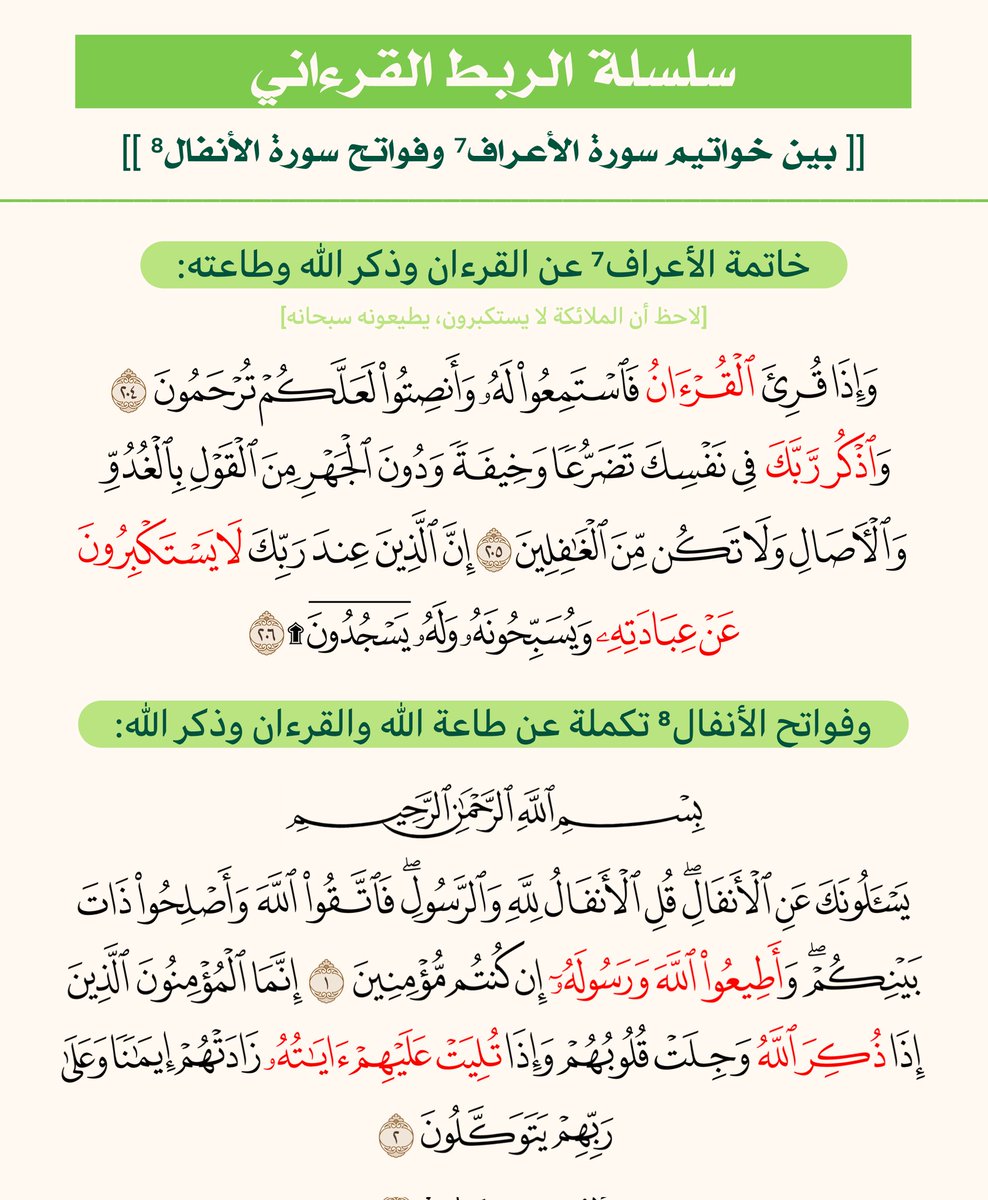 سلسلة الربط القرءاني
[[ بين خواتيم سورة الأعراف⁷ وفواتح سورة الأنفال⁸ ]]
خاتمة الأعراف⁷ عن القرءان وذكر الله وطاعته:
[لاحظ أن الملائكة لا يستكبرون، يطيعونه سبحانه]
وَإِذَا قُرِئَ ٱلْقُرْءَانُ فَٱسْتَمِعُوا۟ لَهُۥ وَأَنصِتُوا۟ لَعَلَّكُمْ تُرْحَمُونَ ٢٠٤
وَٱذْكُر رَّبَّكَ فِى نَفْسِكَ تَضَرُّعًا وَخِيفَةً وَدُونَ ٱلْجَهْرِ مِنَ ٱلْقَوْلِ بِٱلْغُدُوِّ
وَٱلْءَاصَالِ وَلَا تَكُن مِّنَ ٱلْغَٰفِلِينَ ٢٠٥ إِنَّ ٱلَّذِينَ عِندَ رَبِّكَ لَا يَسْتَكْبِرُونَ
عَنْ عِبَادَتِهِۦ وَيُسَبِّحُونَهُۥ وَلَهُۥ يَسْجُدُونَ ۩ ٢٠٦
وفواتح الأنفال⁸ تكملة عن طاعة الله والقرءان وذكر الله:
بِسْمِ ٱللَّهِ ٱلرَّحْمَٰنِ ٱلرَّحِيمِ
يَسْـَٔلُونَكَ عَنِ ٱلْأَنفَالِ ۖ قُلِ ٱلْأَنفَالُ لِلَّهِ وَٱلرَّسُولِ ۖ فَٱتَّقُوا۟ ٱللَّهَ وَأَصْلِحُوا۟ ذَاتَ
بَيْنِكُمْ ۖ وَأَطِيعُوا۟ ٱللَّهَ وَرَسُولَهُۥٓ إِن كُنتُم مُّؤْمِنِينَ ١ إِنَّمَا ٱلْمُؤْمِنُونَ ٱلَّذِينَ
إِذَا ذُكِرَ ٱللَّهُ وَجِلَتْ قُلُوبُهُمْ وَإِذَا تُلِيَتْ عَلَيْهِمْ ءَايَٰتُهُۥ زَادَتْهُمْ إِيمَٰنًا وَعَلَىٰ
رَبِّهِمْ يَتَوَكَّلُونَ ٢